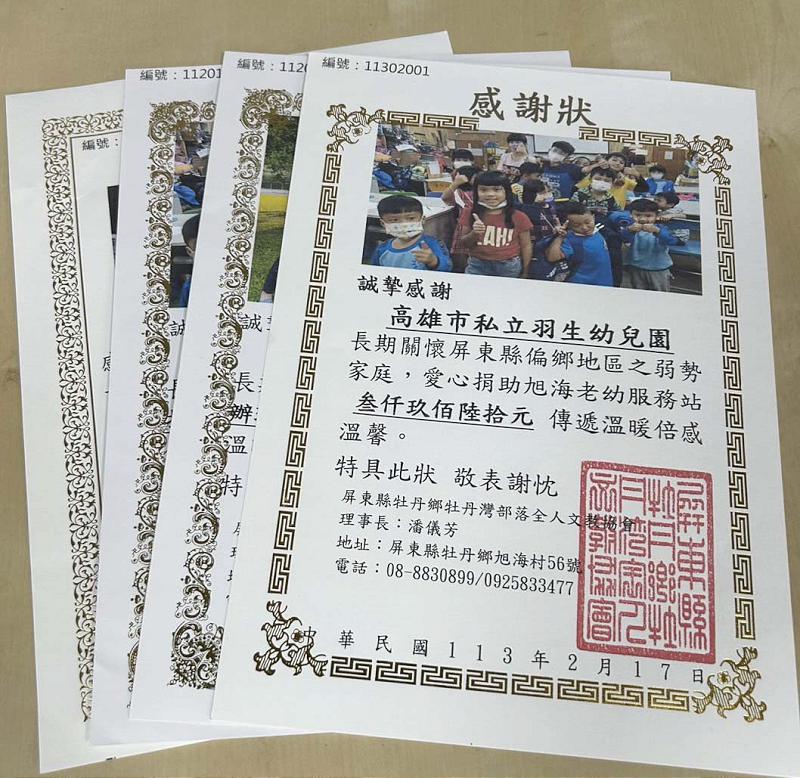 編號：
編號：1120
編號：1120
編號：11302001
感謝狀
YEAH!
誠摯感謝
高雄市私立羽生幼兒園
長期關懷屏東縣偏鄉地區之弱勢
家庭，愛心捐助旭海老幼服務站
叁仟玖佰陸拾元 傳遞溫暖倍感
溫馨。
特具此狀 敬表謝忱
屏東縣牡丹鄉牡丹灣部落全人文教協會
理事長：潘儀芳
地址：屏東縣牡丹鄉旭海村56號
電話：08-8830899/0925833477
中華民國113年2月17日
誠
長
辦
溫
特